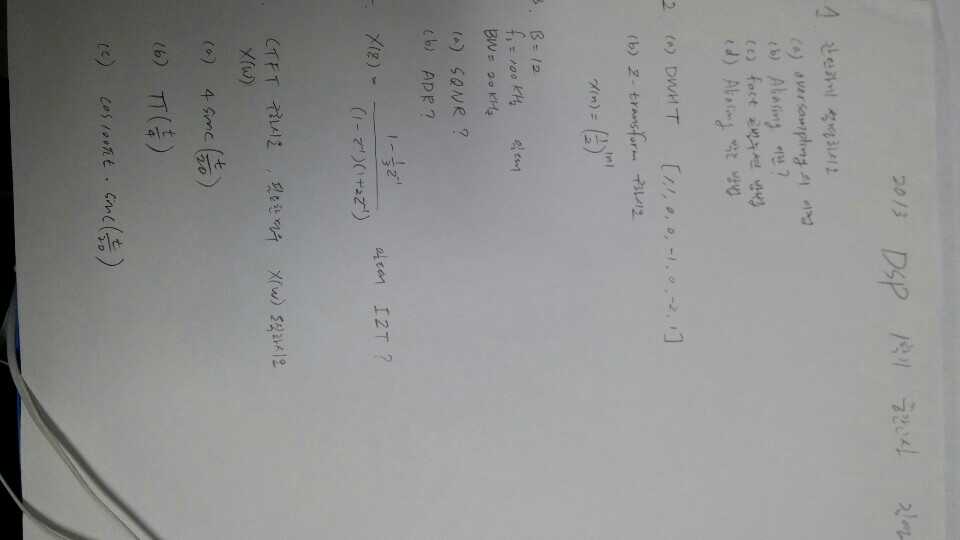 2013 DSP 1학기 중간고사
1 간단하게 설명하시오
(a) oversampling의 이점
(b) Aliasing 이란?
(c) fast 콘벌루션 방법
(d) Aliasing 막는 방법
2 (a) DWHT [1,1, 0, 0, -1, 0, -2, 1]
(b) Z-transform 구하시오
x(n) = (1/2)^|n|
3. B = 12
fs = 100 KHz 일때
BW = 20 KHz
(a) SQNR ?
(b) ADR ?
X(z) = (1 - 1/3 z^-1) / ((1 - z^-1)(1 + 2z^-1)) 일때 IZT ?
CTFT 구하시오, 필요한경우 X(w) 도식하시오
X(w)
(a) 4 sinc(t/20)
(b) Π(t/4)
(c) cos100πt · sinc(t/20)